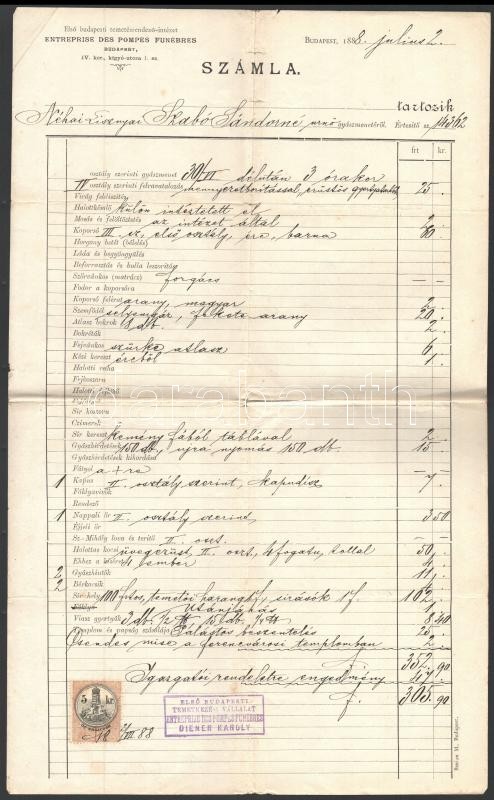 Első budapesti temetésrendező-intézet
ENTREPRISE DES POMPES FUNEBRES
BUDAPEST,
IV. ker., kigyó-utcza 1. sz.
BUDAPEST, 1888. julius 2.
SZÁMLA.
tartozik
Néhai Szabó Sándorné urnő gyászmenetéről. Értesítő sz. 14362
frt kr.
osztály szerinti gyászmenet 30/VI délután 3 órakor
IV osztály szerinti felravatalozás mennyezetboritással, ezüstös 25 -
Virág feldíszítés
Halottkémlő külön intéztetett el
Mosás és felöltöztetés az intézet által 2 -
Koporsó III sz, első osztály, ércz, barna
Horgany betét (bélelés)
Léda és begyógyülés
Szőrzsákos (matrácz) forgács
Fodor a koporsóra
Koporsó felirat arany, magyar 2 -
Szemfödél selyemgáz, fekete arany 20 -
Atlasz bokrok 8 db. 2
Bokréták
Fejvánkos szürke atlasz 6
Kézi kereszt érczből 1
Halotti ruha
Fejkoszorú
Halotti
Sír koszorú
Czimerek
Sír kereszt kemény fából táblával 2
Gyászjelentések 150 db., ujra nyomás 150 db. 15
Gyászjelentések kihordása
Fátyol a +re
1 Kapus II. osztály szerint, kapudísz 7
Fáklyavivők
Rendező
1 Nappali őr II. osztály szerint 3 50
Éjjeli őr
Sz.-Mihály lova és terítő II. oszt.
Halottas kocsi üvegezüst, II. oszt., 4 fogatu, tollal 50
Ehhez a 4 ember 4
2 Gyászhintók 11
2 Bérkocsik 4
Sír hely 100 frtos, temetői harang f, sirásók 1 f 102
Utánjárás 1
Viasz gyertyák 3 db. 1/2 15 db. 8 40
Templom és papság számlája Palástos beszentelés 25
Csendes mise a ferenczvárosi templomban 2
352 90
Igazgatói rendeletre engedmény 47
f. 305 90
5 kr.
88
ELSŐ BUDAPESTI
TEMETKEZÉSI VÁLLALAT
ENTREPRISE DES POMPES FUNEBRES
DIENER KÁROLY
darabanth